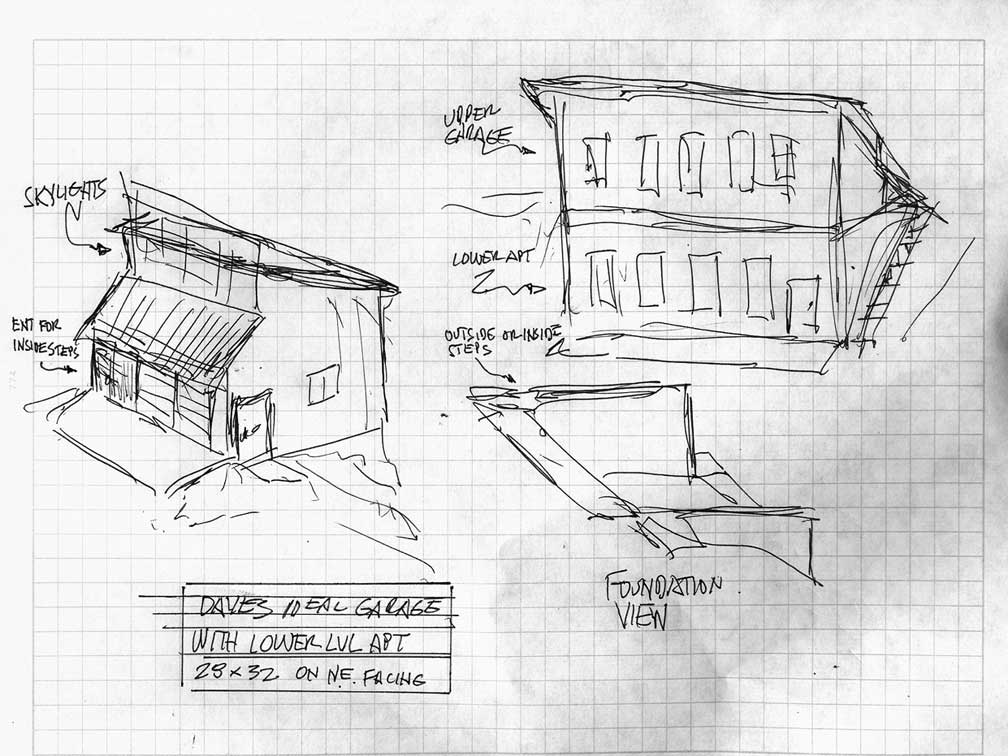 SKYLIGHTS
ENT FOR
INSIDE STEPS
UPPER
GARAGE
LOWER APT
OUTSIDE OR INSIDE
STEPS
FOUNDATION
VIEW
DAVES IDEAL GARAGE
WITH LOWER LVL APT
28 x 32 ON N.E. FACING